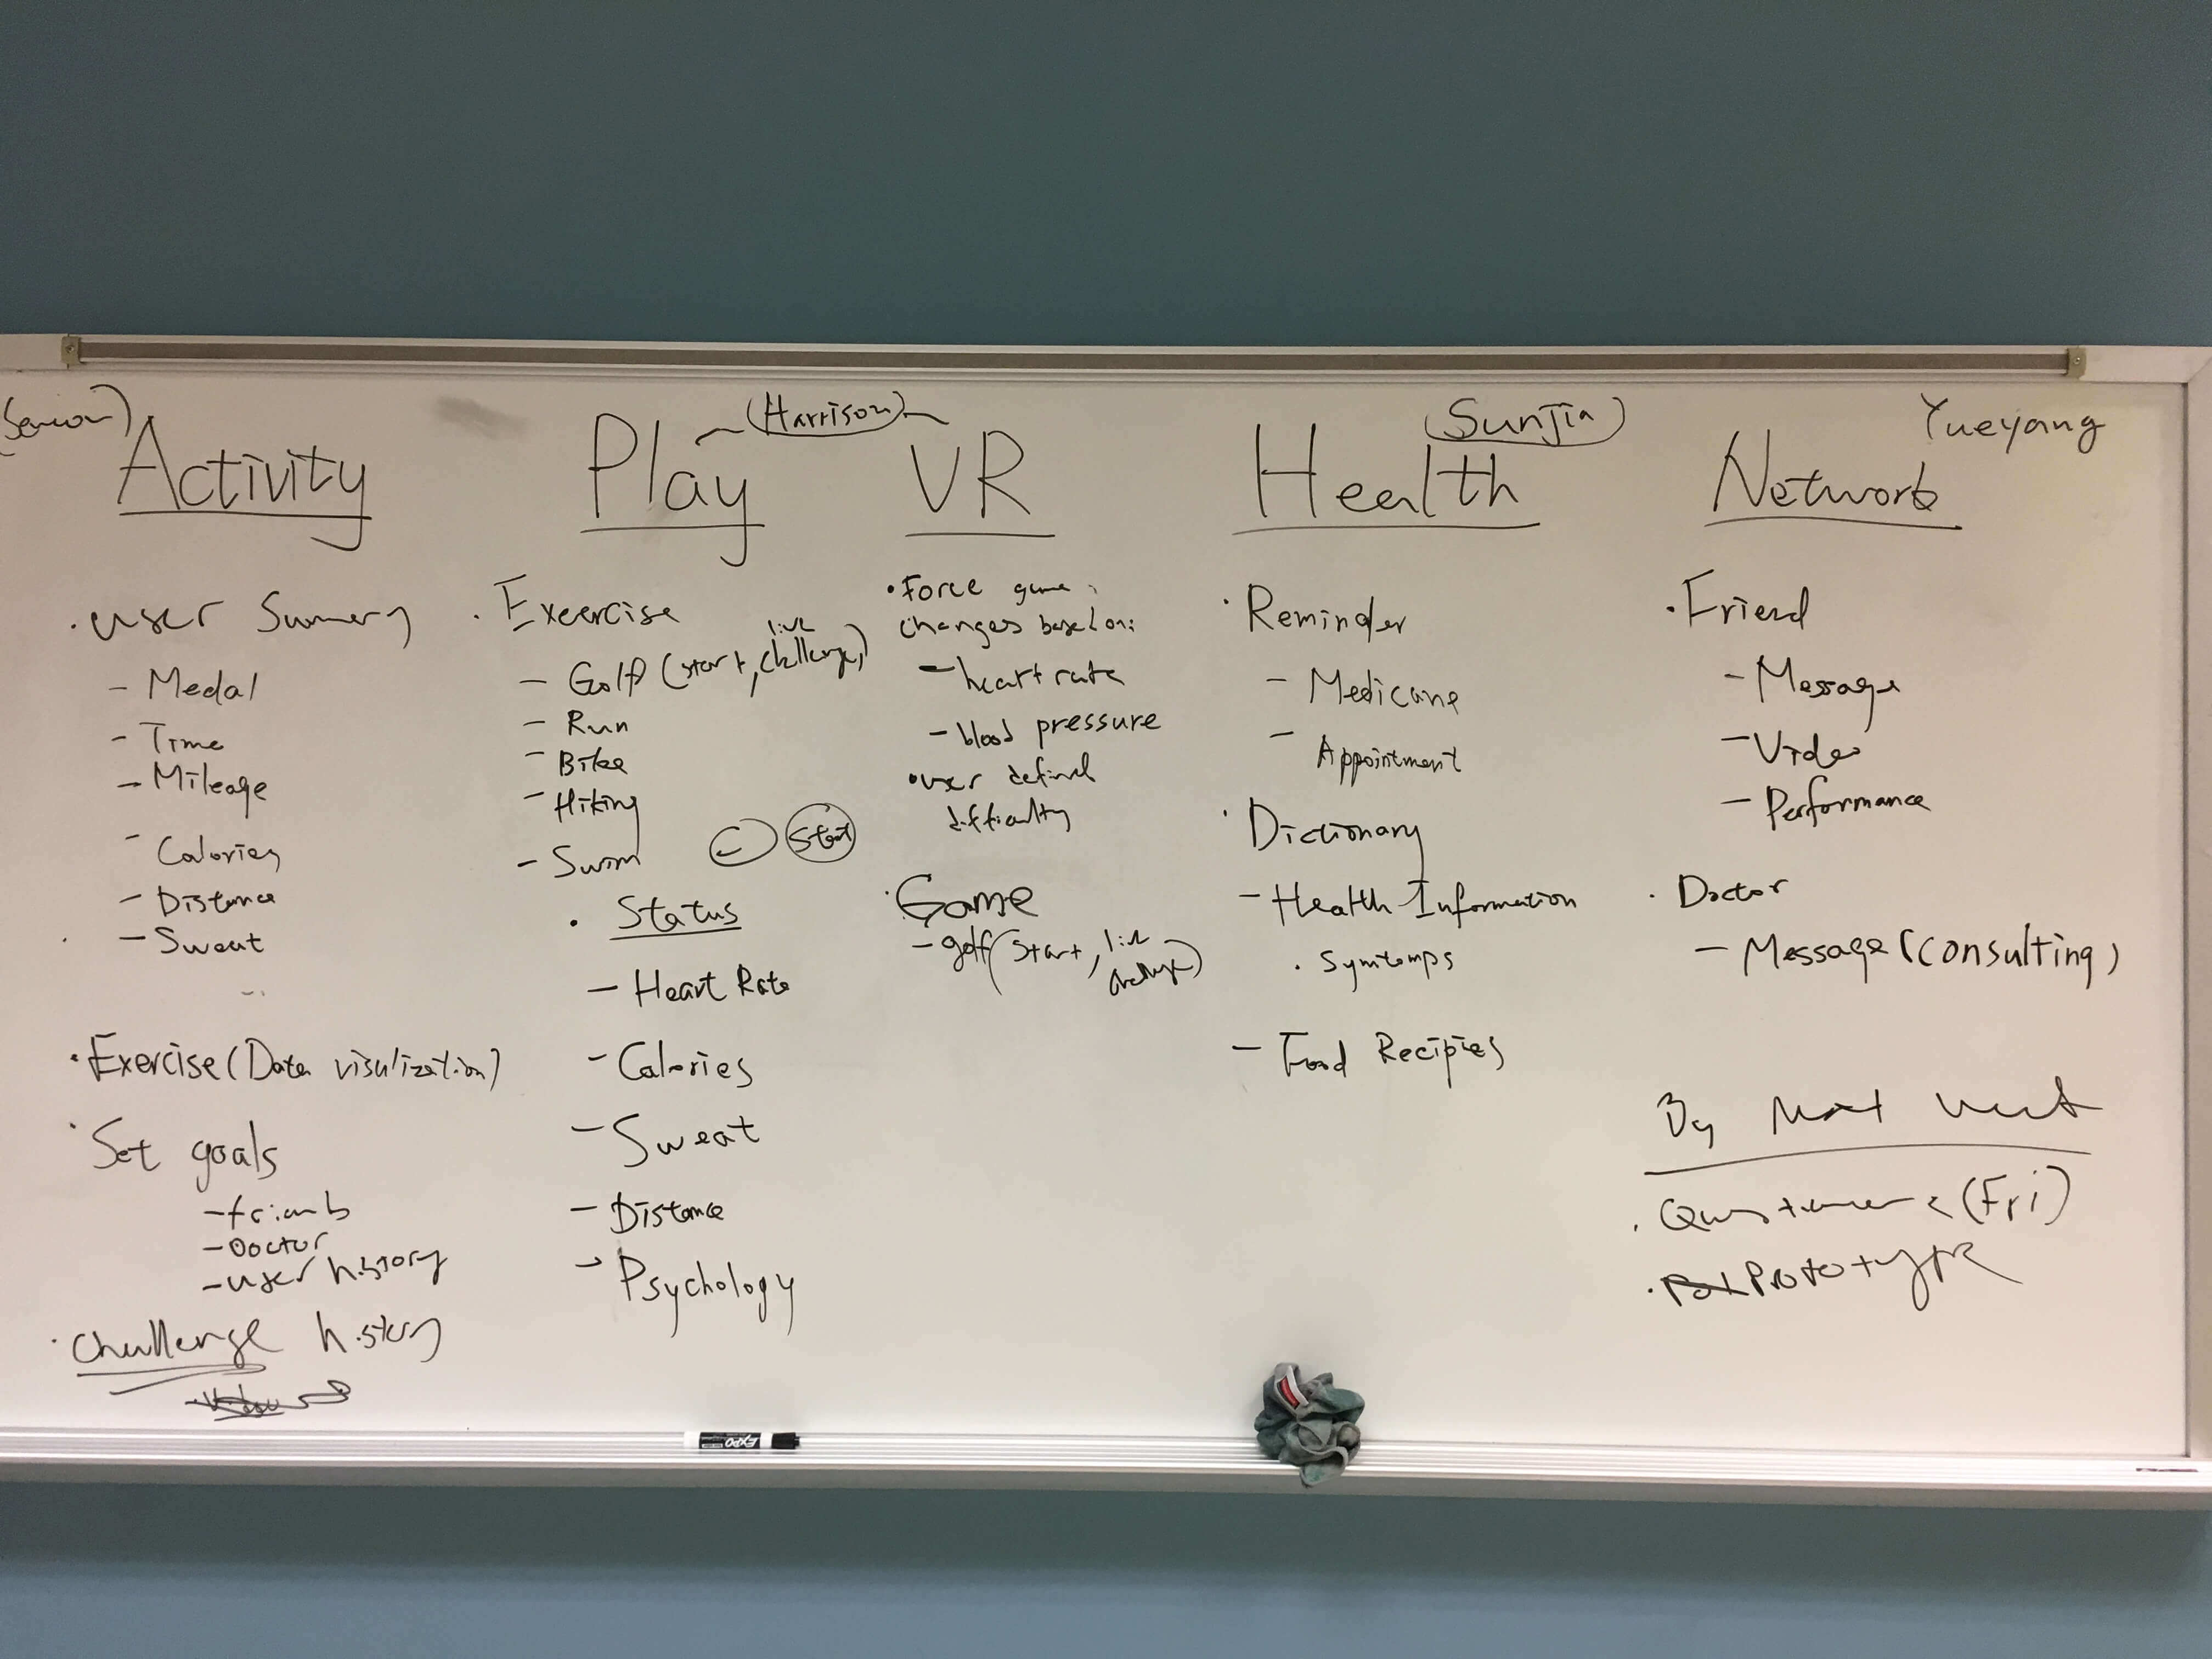 Activity
· user Summery
- Medal
- Time
- Mileage
- Calories
- Distance
- Sweat
· Exercise (Data visulization)
· Set goals
- friends
- Doctor
- user history
· Challenge history
(Harrison)
Play
· Exercise
- Golf (start, live challenge)
- Run
- Bike
- Hiking
- Swim
Start
· Status
- Heart Rate
- Calories
- Sweat
- Distance
- Psychology
VR
· Force game
changes based on:
- heart rate
- blood pressure
· user defined
difficulty
· Game
- golf (start, live
challenge)
(SunJia)
Health
· Reminder
- Medicane
- Appointment
· Dictionary
- Health Information
· Symtomps
- Food Recipies
Yueyang
Network
· Friend
- Message
- Video
- Performance
· Doctor
- Message (consulting)
By Next week
· (Fri)
· Prototype
EXPO